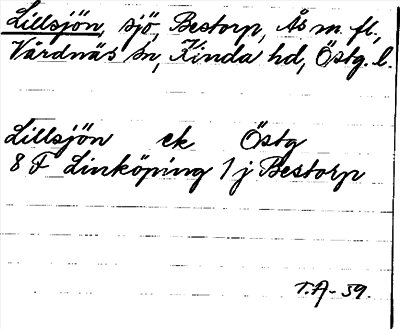 Lillsjön, sjö, Bestorp, Ås m. fl.,
Vårdnäs sn, Kinda hd, Östg. l.
Lillsjön ek Östg
8 F Linköping 1 j Bestorp
T.A-39.